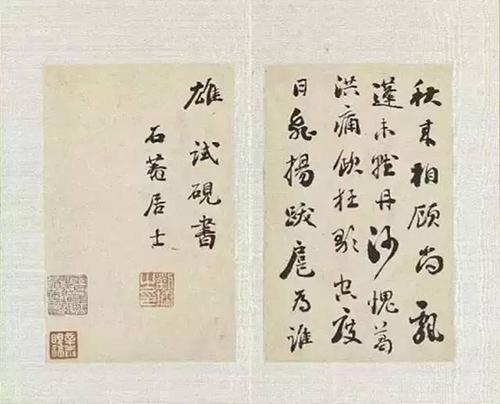 秋來相顧尚飄
蓬未就丹沙愧葛
洪痛飲狂歌空度
日飛揚跋扈為誰
雄 試硯書
石菴居士